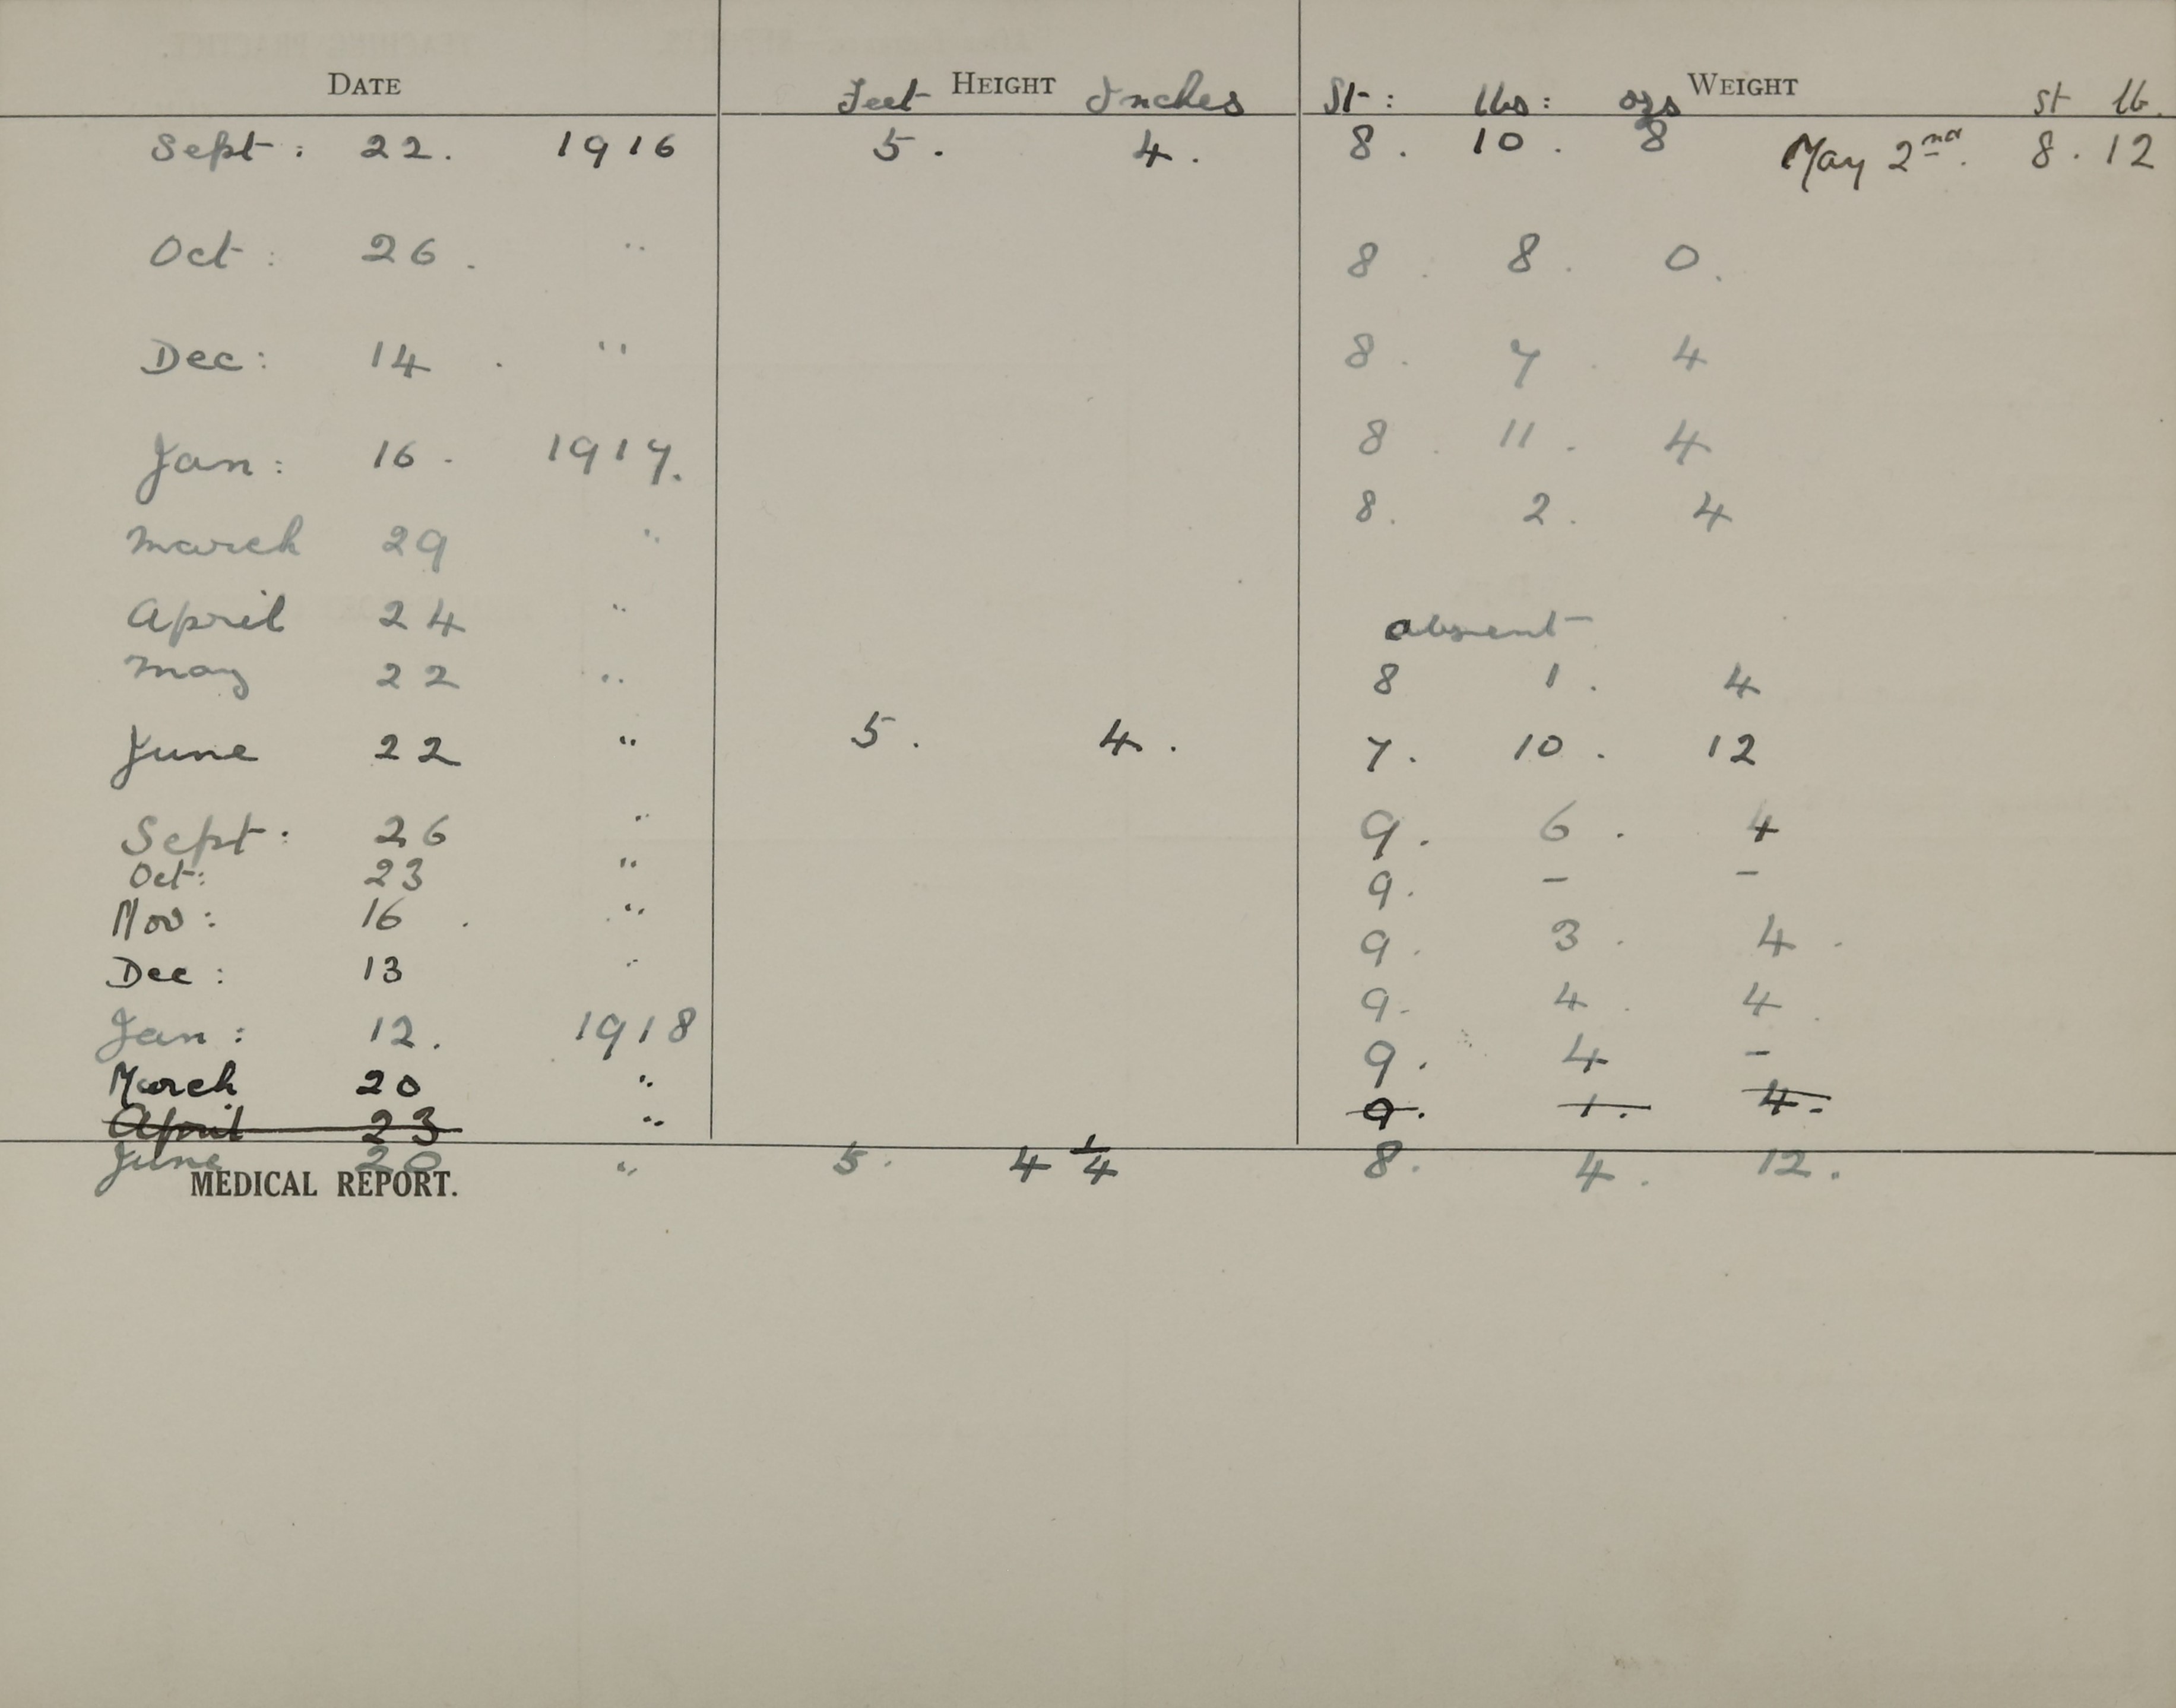 DATE HEIGHT WEIGHT
Feet Inches St: lbs: ozs st lb.
Sept: 22. 1916 5. 4. 8. 10. 8 May 2nd. 8. 12
Oct: 26. " 8. 8. 0.
Dec: 14. " 8. 7. 4
Jan: 16. 1917. 8. 11. 4
March 29 " 8. 2. 4
April 24 " absent
May 22 " 8 1. 4
June 22 " 5. 4. 7. 10. 12
Sept: 26 " 9. 6. 4
Oct: 23 " 9. - -
Nov: 16. " 9. 3. 4.
Dec: 13 " 9. 4. 4.
Jan: 12. 1918 9. 4 -
March 20 " 9. 1. 4.
April 23 "
June 20 " 5. 4 1/4 8. 4. 12.
MEDICAL REPORT.